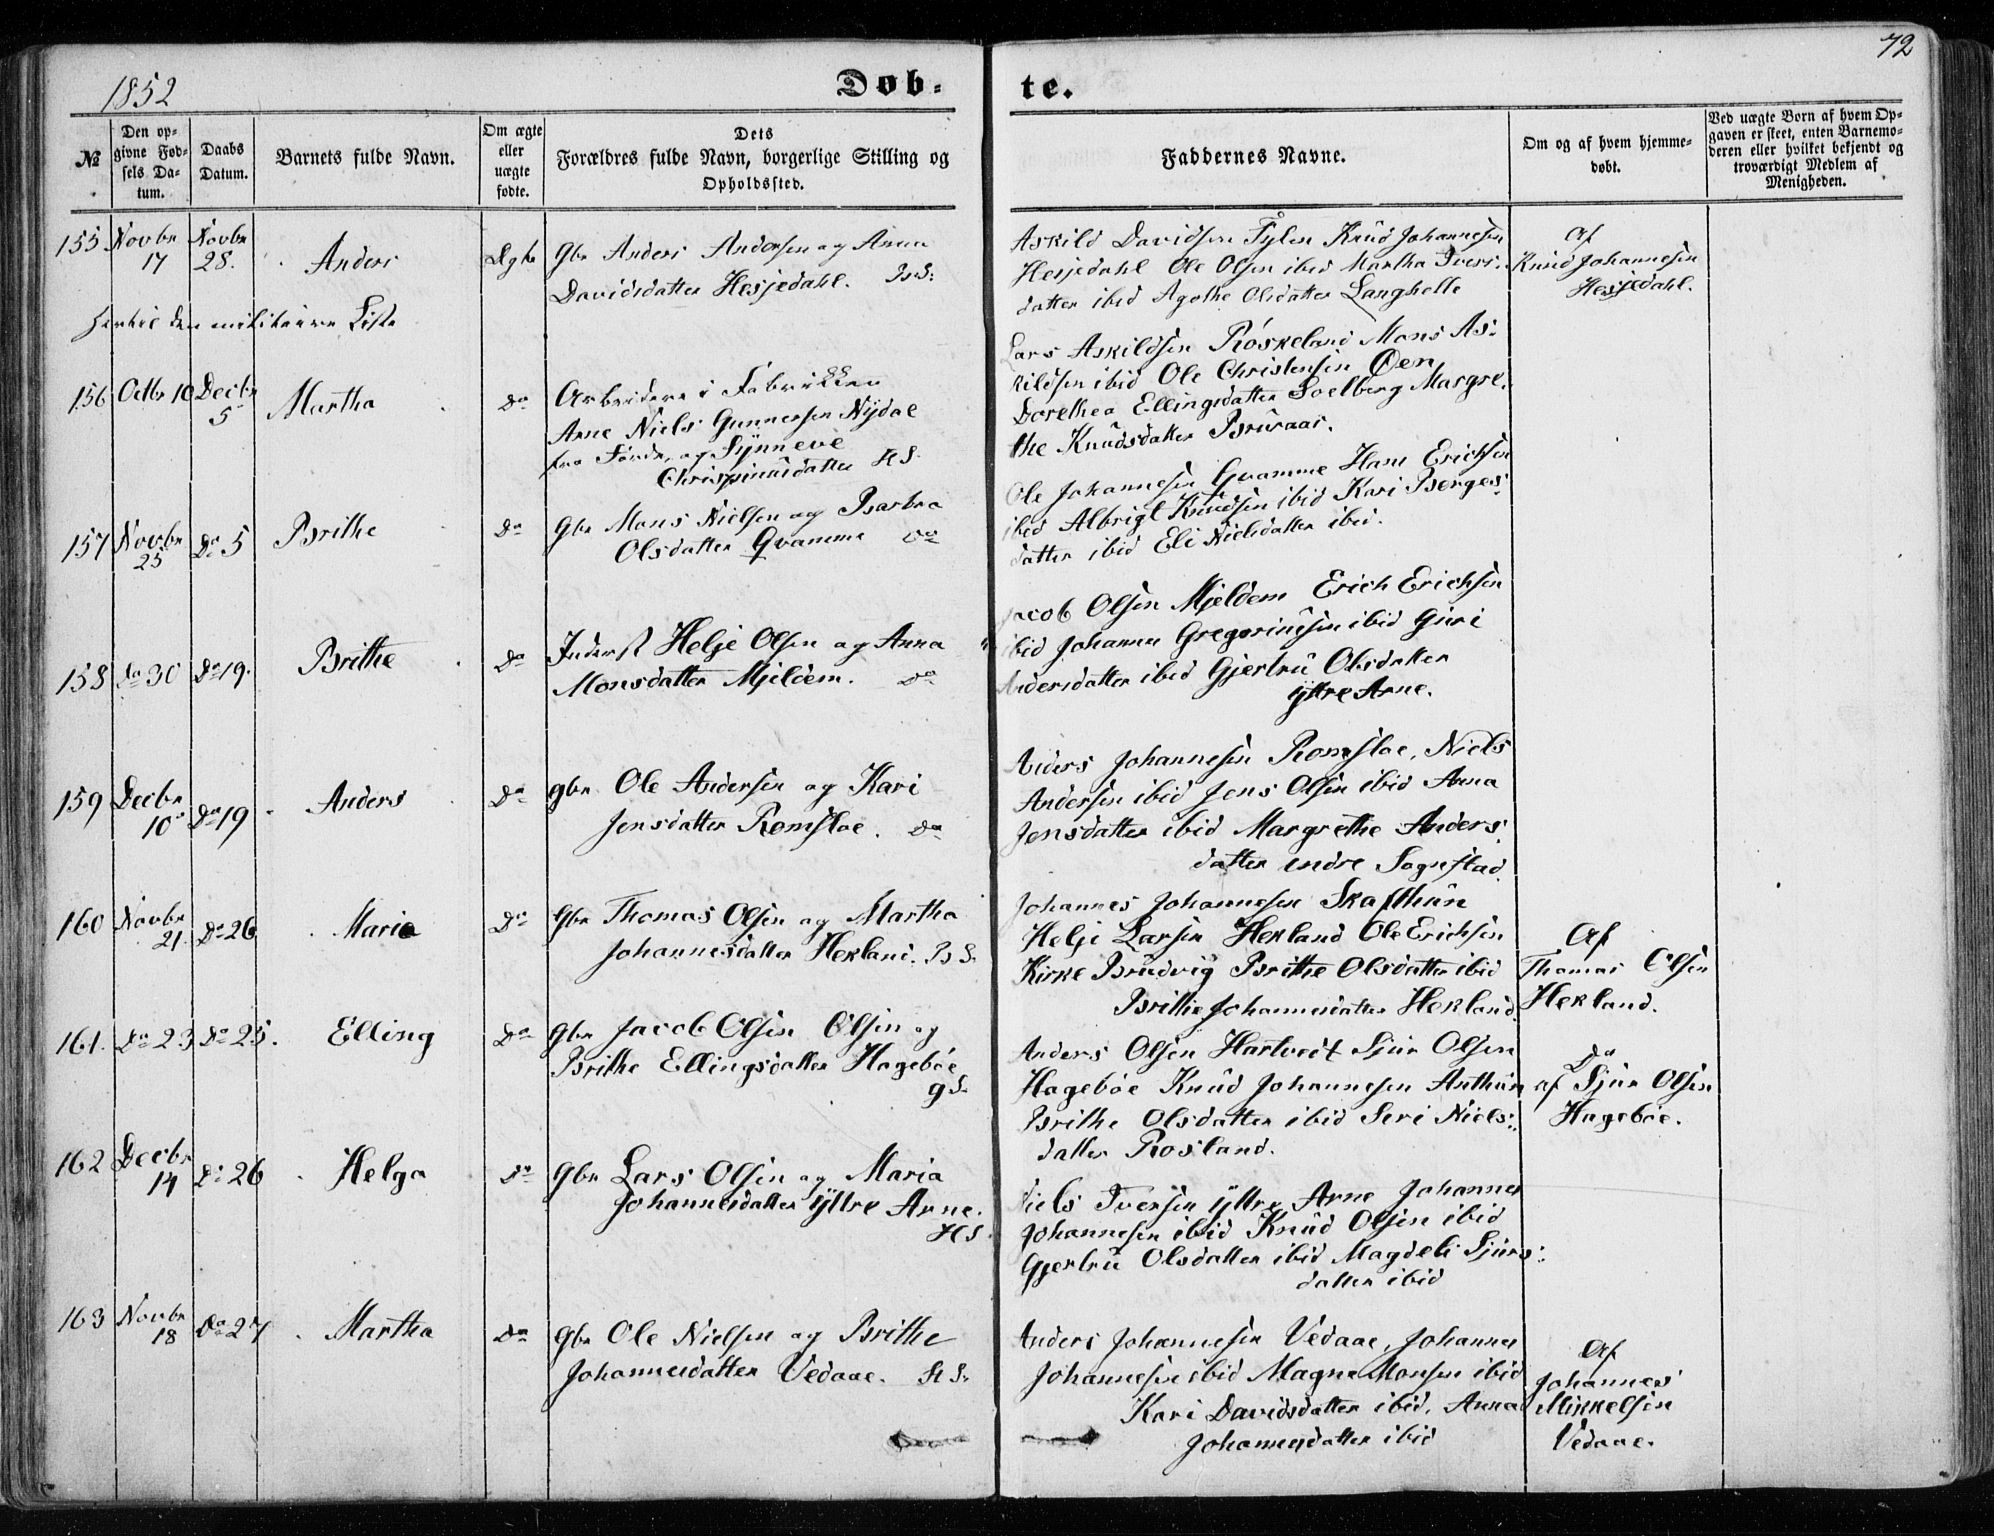 1852
Døb-
te.
72
№
Den op-
givne Fød-
sels Da-
tum.
Daabs
Datum.
Barnets fulde Navn.
Om ægte
eller
uægte
fødte.
Dets
Forældres fulde Navn, borgerlige Stilling og
Opholdssted.
Faddernes Navne.
Om og af hvem hjemme-
døbt.
Ved uægte Børn af hvem Op-
gaven er skeet, enten Barnemo-
deren eller hvilket bekjendt og
troværdigt Medlem af
Menigheden.
155 Novbr 17 Novbr 28. Anders Ægte
Gbr Anders Andersen og Anna
Davidsdatter Hesjedahl. BS:
Askild Davidsen Fylen Knud Johannesen
Hesjedahl Ole Olsen ibid Martha Ivers-
datter ibid Agathe Olsdatter Langhelle
Af
Knud Johannesen
Hesjedahl.
hertil den militaire Liste
156 Octbr 10 Decbr 5 Martha Do
Arbeidere i Fabrikken
Arne Niels Gunnersen Nydal
fra Førde, og Synneve
Chrispinusdatter HS.
Lars Askildsen Røskeland Mons As-
kildsen ibid Ole Christensen Øen
Dorethea Ellingsdatter Soelberg Margre-
the Knudsdatter Bruraas.
157 Novbr 25 Do 5 Brithe Do
Gbr Mons Nielsen og Barbra
Olsdatter Gvamme Do
Ole Johannesen Gvamme Hans Erichsen
ibid Albrigt Knudsen ibid Kari Børges-
datter ibid Eli Nielsdatter ibid.
158 Do 30 Do 19. Brithe Do
Inderst Helje Olsen og Anna
Monsdatter Mjeldem. Do
Jacob Olsen Mjeldem Erich Erichsen
ibid Johannes Gregoriusen ibid Guri
Andersdatter ibid Gjertru Olsdatter
Yttre Arne.
159 Decbr 10 Do 19 Anders Do
gbr Ole Andersen og Kari
Jensdatter Romsloe. Do
Anders Johannesen Romsloe, Niels
Andersen ibid Jens Olsen ibid Anna
Jensdatter ibid Margrethe Anders-
datter indre Sognstad.
160 Novbr 21. Do 26 Maria Do
Gbr Thomas Olsen og Martha
Johannesdatter Hekland. BS.
Johannes Johannesen Skafthun
Helje Larsen Hekland Ole Erichsen
Kirke Brudvig Brithe Olsdatter ibid
Brithe Johannesdatter Hekland
Af
Thomas Olsen
Hekland.
161. Do 23 Do 25. Elling Do
Gbr Jacob Olsen Olsen og
Brithe Ellingsdatter Hagebøe
gS.
Anders Olsen Hartvedt Sjur Olsen
Hagebøe Knud Johannesen Anthun
Brithe Olsdatter ibid Seri Niels-
datter Rosland.
Do
af Sjur Olsen
Hagebøe.
162 Decbr 14 Do 26 Helga Do
Gbr Lars Olsen og Maria
Johannesdatter Yttre Arne.
HS
Niels Iversen Yttre Arne Johannes
Johannesen ibid Knud Olsen ibid
Gjertru Olsdatter ibid Magdeli Sjurs-
datter ibid
163 Novbr 18 Do 27 Martha Do
Gbr Ole Nielsen og Brithe
Johannesdatter Vedaae. HS.
Anders Johannesen Vedaae, Johannes
Johannesen ibid Magne Monsen ibid
Kari Davidsdatter ibid, Anna
Johannesdatter ibid
Af
Johannes
Mikkelsen
Vedaae.